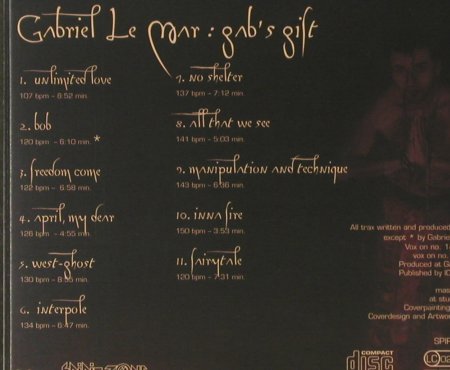 Gabriel Le Mar : gab's gift
1. unlimited love
107 bpm - 8:52 min.
2. bob
120 bpm - 6:10 min. *
3. freedom come
122 bpm - 6:58 min.
4. april, my dear
126 bpm - 4:55 min.
5. west-ghost
130 bpm - 8:56 min.
6. interpole
134 bpm - 6:47 min.
7. no shelter
137 bpm - 7:12 min.
8. all that we see
141 bpm - 5:03 min.
9. manipulation and technique
143 bpm - 6:36 min.
10. inna fire
150 bpm - 3:53 min.
11. fairytale
120 bpm - 7:31 min.
All trax written and produced
except * by Gabrie
Vox on no. 1
vox on no.
Produced at G
Published by
mas
at stu
Coverpainting
Coverdesign and Artwor
SPIR
COMPACT
disc
LC 02